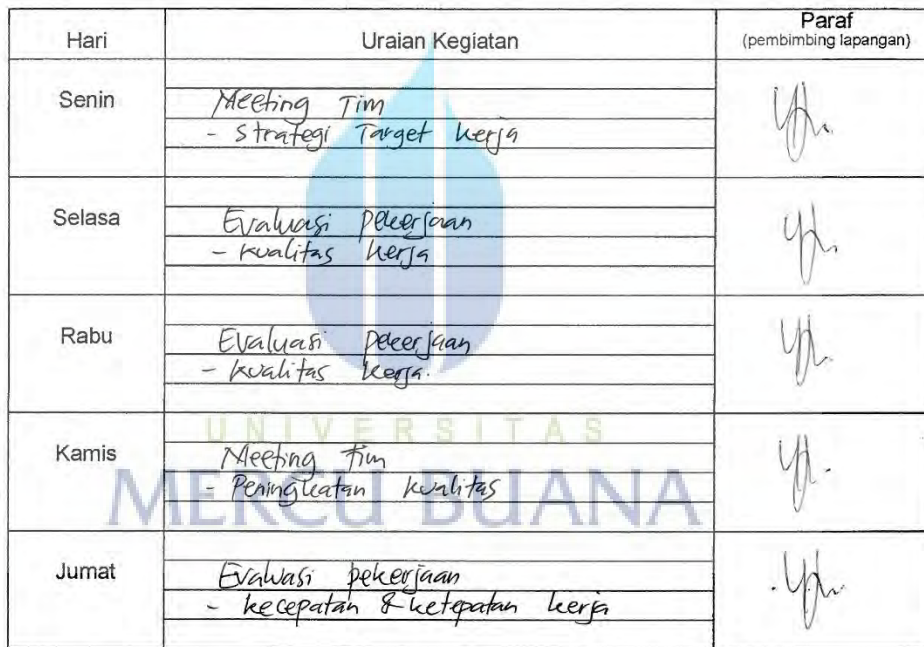 Hari Uraian Kegiatan Paraf
(pembimbing lapangan)
Senin
Meeting Tim
- Strategi Target kerja
Selasa
Evaluasi pekerjaan
- kualitas kerja
Rabu
Evaluasi pekerjaan
- kualitas kerja.
UNIVERSITAS
Kamis
Meeting Tim
- Peningkatan kualitas
MERCU BUANA
Jumat
Evaluasi pekerjaan
- kecepatan & ketepatan kerja